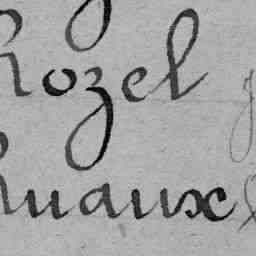 Rozel
Ruaux